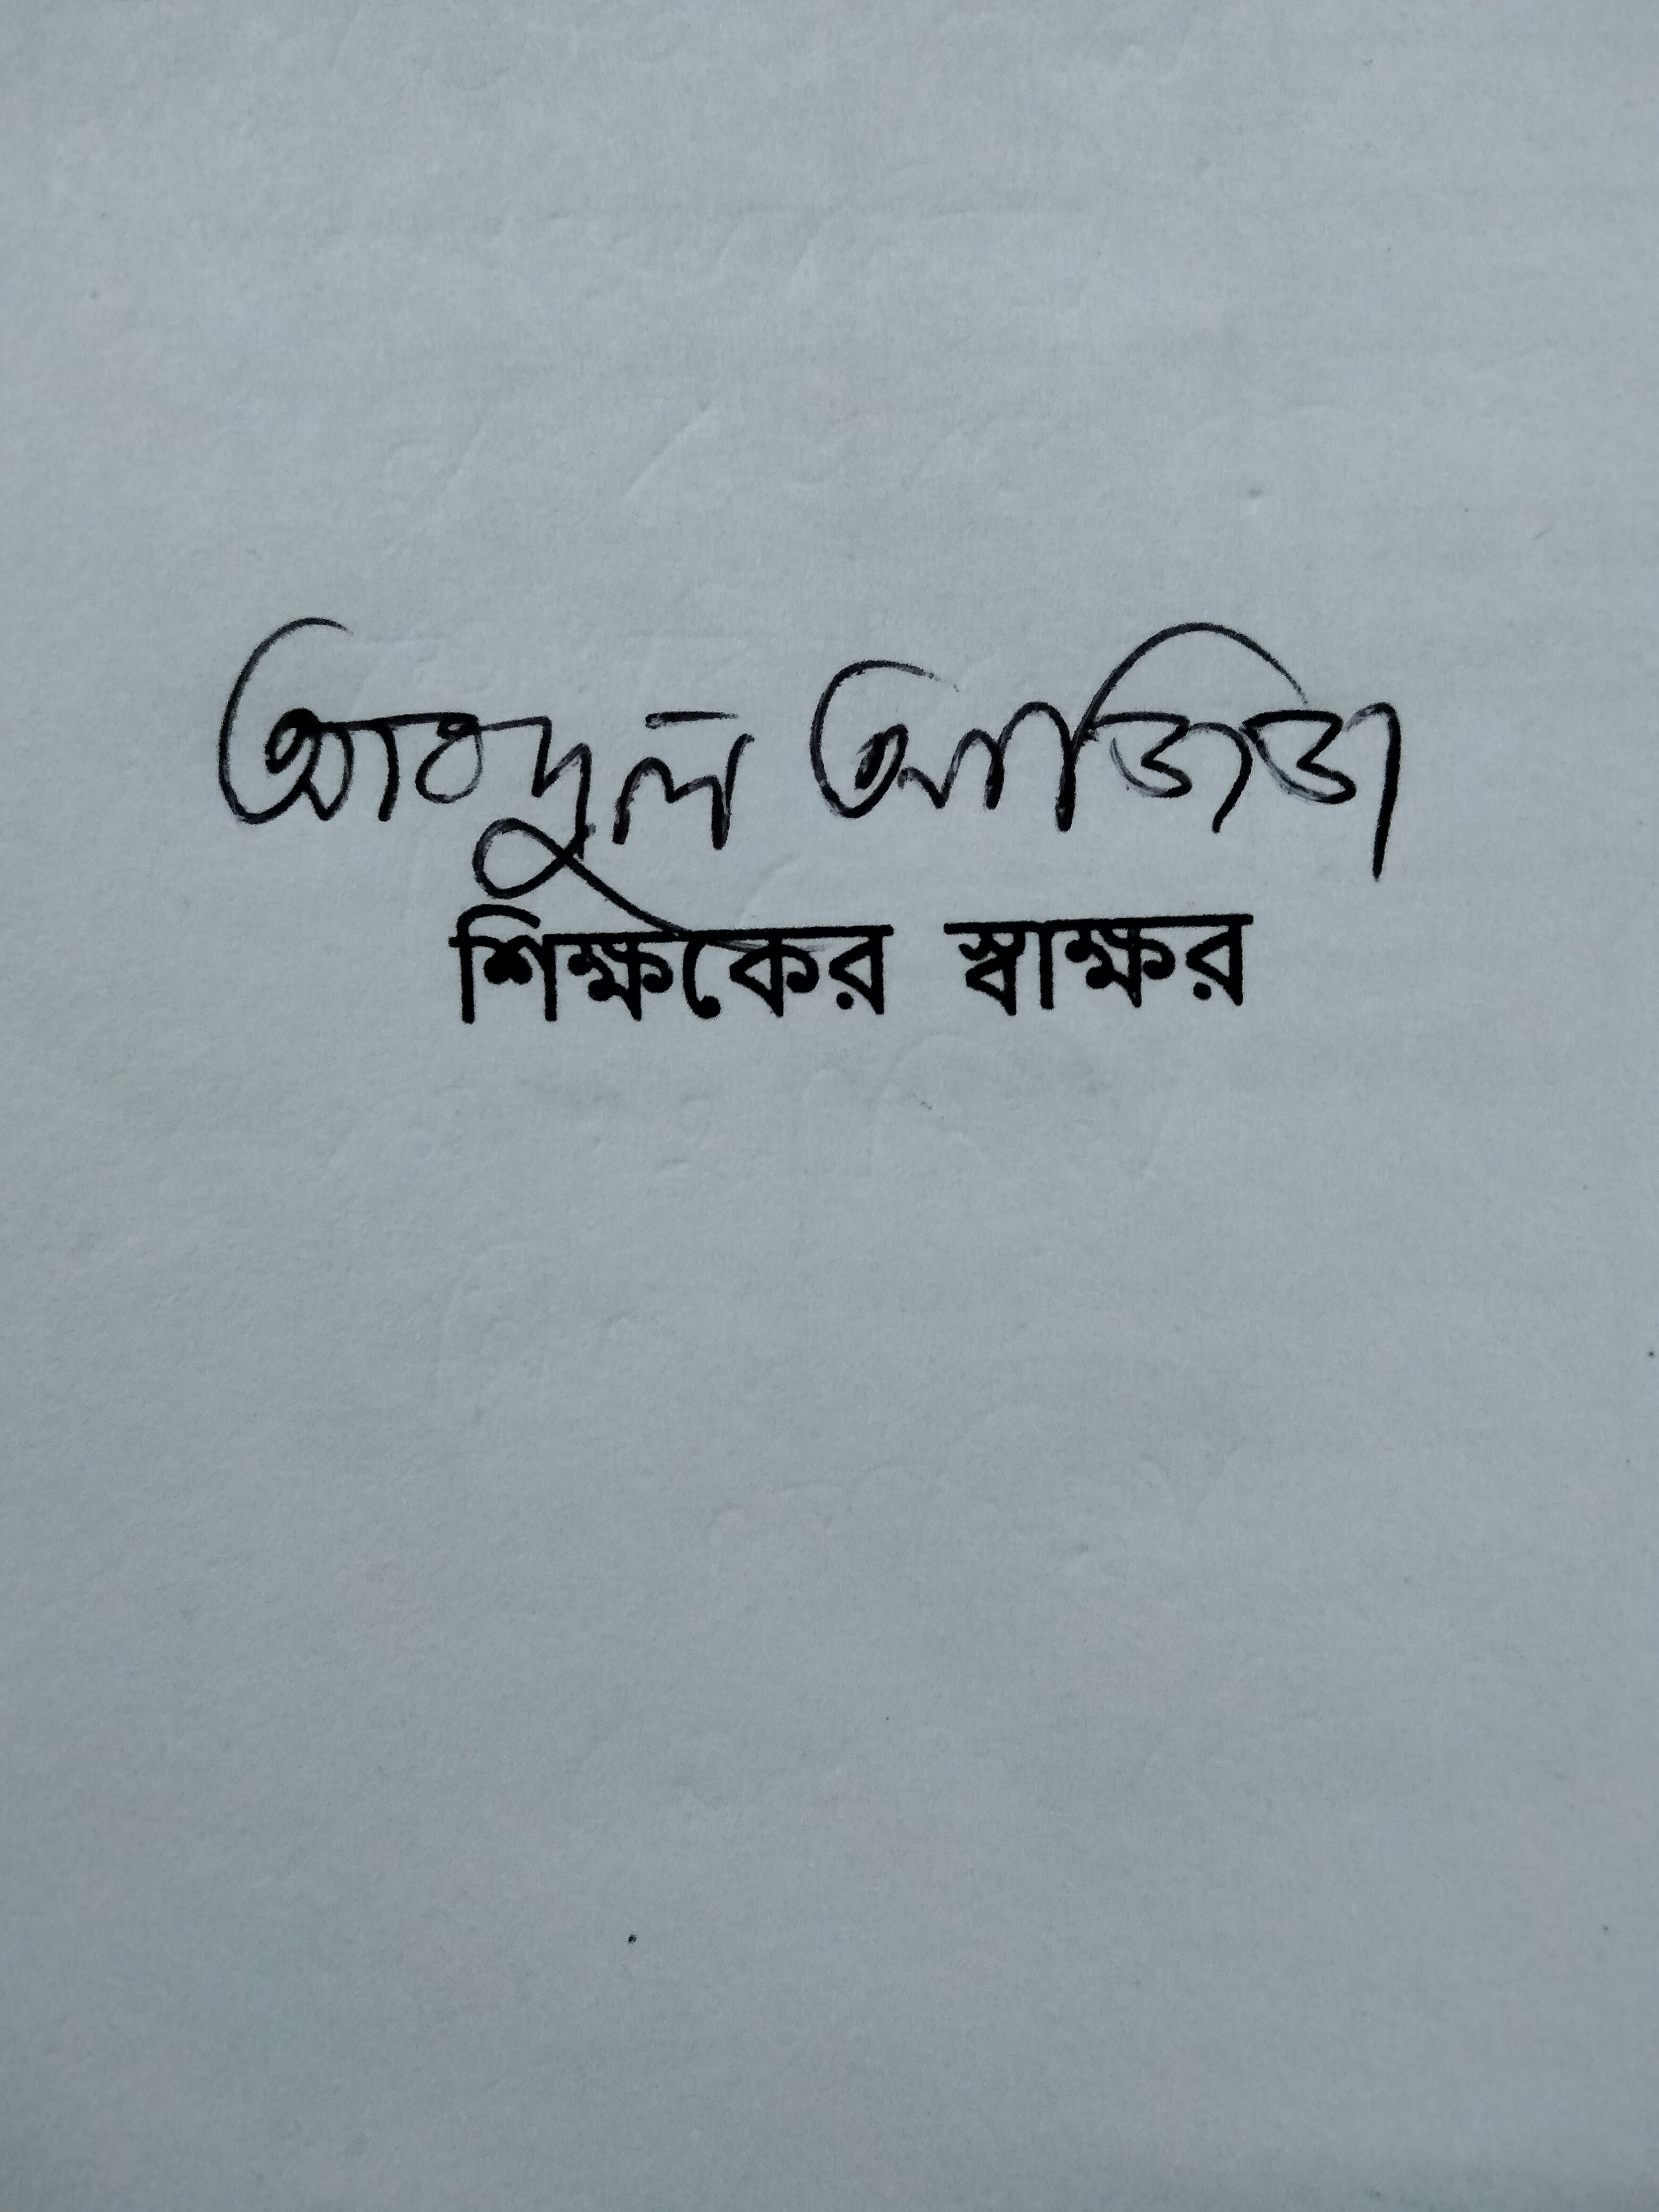 আবদুল আজিজ
শিক্ষকের স্বাক্ষর